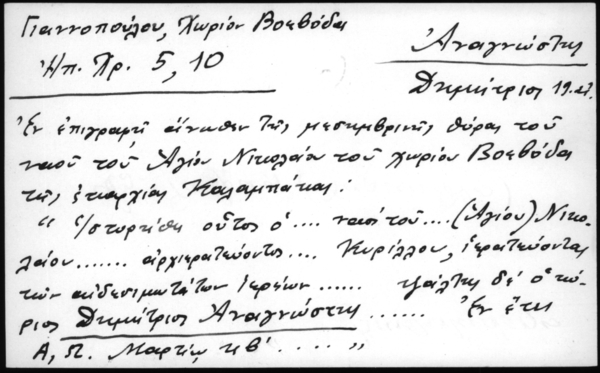 Γιαννοπούλου, Χωρίον Βοεβόδα
Ἠπ. Χρ. 5, 10
Ἀναγνώστης
Δημήτριος 19.
Ἐν ἐπιγραφῇ ἄνωθεν τῆς μεσημβρινῆς θύρας τοῦ
ναοῦ τοῦ Ἁγίου Νικολάου τοῦ χωρίου Βοεβόδα
τῆς ἐπαρχίας Καλαμπάκας:
" οὗτος ὁ .... ναὸς τοῦ .... (Ἁγίου) Νικο-
λάου ....... ἀρχιερατεύοντος .... Κυρίλλου, ἱερατεύοντος
τῶν αἰδεσιμωτάτων ἱερέων ...... ψάλτης δέ ὁ κύ-
ριος Δημήτριος Ἀναγνώστης ...... Ἐν ἔτει
Α, Ω. Μαρτίῳ κβ' ..... "